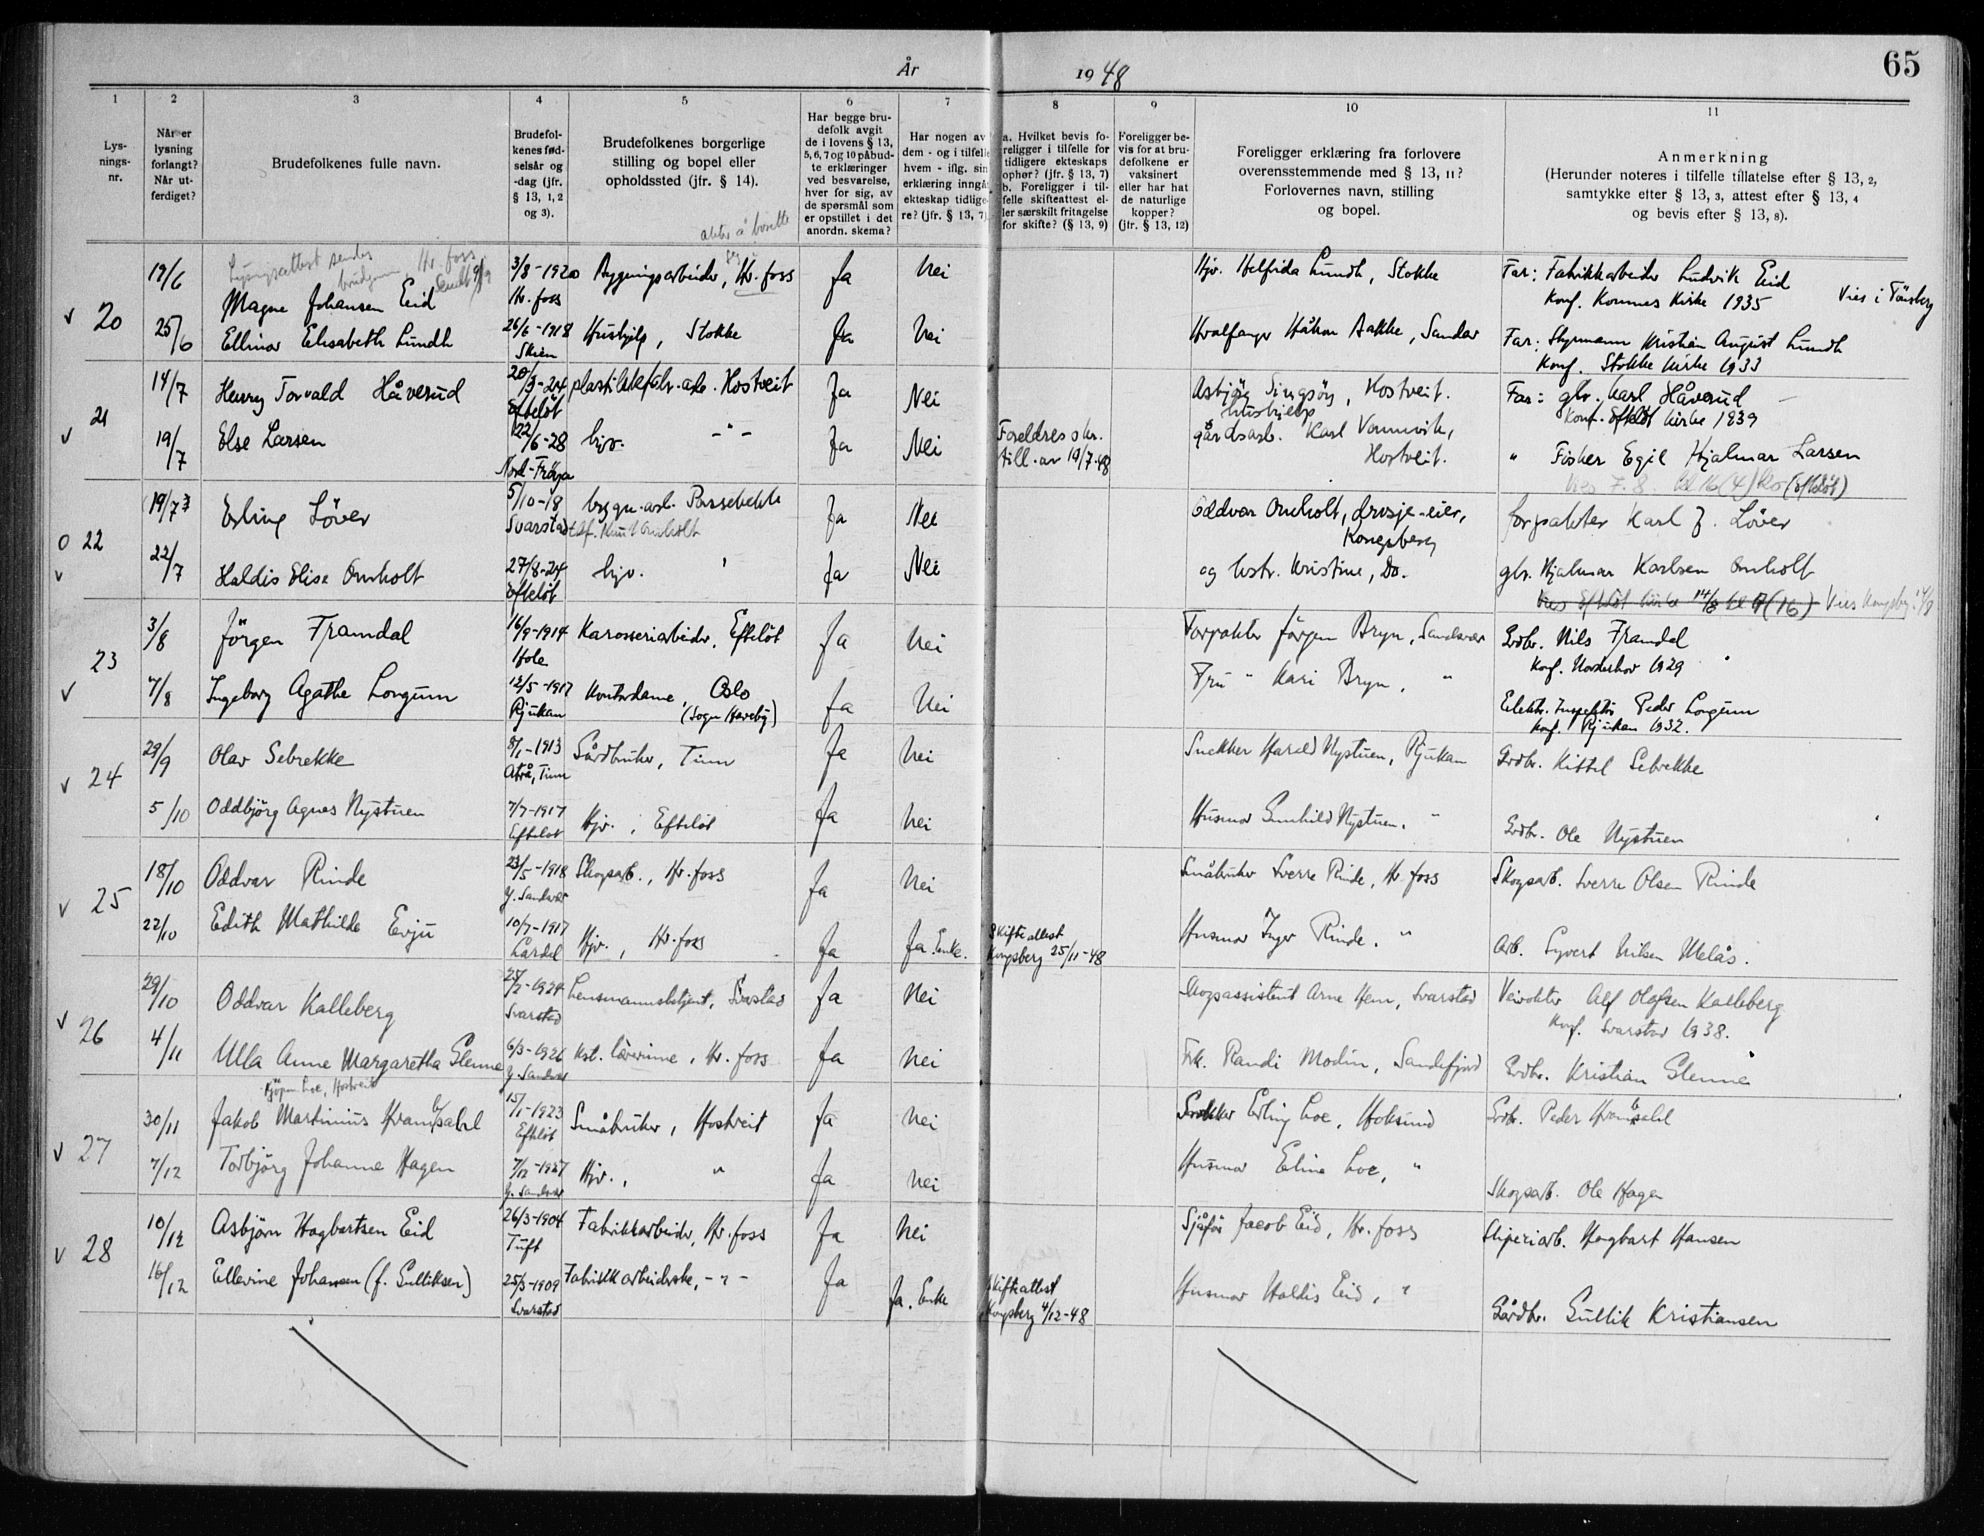 65
År 1948
1 2 3 4 5 6 7 8 9 10 11
Lysnings-nr.
Når er lysning forlangt? Når utferdiget?
Brudefolkenes fulle navn.
Brudefolkenes fødselsår og -dag (jfr. § 13, 1, 2 og 3).
Brudefolkenes borgerlige stilling og bopel eller opholdssted (jfr. § 14).
Har begge brudefolk avgit de i lovens § 13, 5, 6, 7 og 10 påbudte erklæringer ved besvarelse, hver for sig, av de spørsmål som er opstillet i det anordn. skema?
Har nogen av dem - og i tilfelle hvem - iflg. sin erklæring inngå ekteskap tidligere? (jfr. § 13, 7)
a. Hvilket bevis foreligger i tilfelle for tidligere ekteskaps ophør? (jfr. § 13, 7) b. Foreligger i tilfelle skifteattest eller særskilt fritagelse for skifte? (§ 13, 9)
Foreligger bevis for at brudefolkene er vaksinert eller har hat de naturlige kopper? (jfr. § 13, 12)
Foreligger erklæring fra forlovere overensstemmende med § 13, 11? Forlovernes navn, stilling og bopel.
Anmerkning (Herunder noteres i tilfelle tillatelse efter § 13, 2, samtykke efter § 13, 3, attest efter § 13, 4 og bevis efter § 13, 8).
akter å bosette seg
Lysingsattest sendes brudgom, Hv. foss
v 20 19/6 Magne Johansen Eid 3/8-1920 Hv. foss Bygningsarbeider, Hv. foss Ja Nei Hjv. Helfrida Lundh, Stokke Far: Fabrikkarbeider Ludvik Eid
Konf. Komnes Kirke 1935 Vies i Tönsberg
25/6 Ellinor Elisabeth Lundh 26/6-1918 Skien Hushjelp, Stokke Ja Nei Hvalfanger Håkon Bakke, Sandar Far: Styrmann Kristian August Lundh
Konf. Stokke kirke 1933
v 21 14/7 Henry Torvald Håverud 20/3-24 Efteløt plastikkfabr.-arb. Hostveit Ja Nei Asbjörg Singsös, Hostveit. hushjelp Far: gbr. Karl Håverud
Konf. Efteløt kirke 1939
19/7 Else Larsen 22/6-28 Nord-Fröya hjv. -"- Ja Nei Foreldres skr. till. av 19/7-48 gårdsarb. Karl Vammvik, Hostveit. " Fisker Egil Hjalmar Larsen
Vies 7.8. kl 16 (4) (Efteløt)
o v 22 19/7 Erling Löver 5/10-18 Svarstad bygn.-arb. Passebekk Ja Nei Oddvar Omholt, drosje-eier, Kongsberg forpakter Karl J. Löver
tlf. Knut Omholt
22/7 Haldis Elise Omholt 27/8-24 Efteløt hjv. " Ja Nei og hstr. Kristine, Do. gbr. Hjalmar Karlsen Omholt
Vies Efteløt kirke 14/8 kl (16) Vies Kongsberg
v 23 3/8 Jörgen Framdal 16/9-1914 Hole Karosseriarbeider, Efteløt Ja Nei Forpakter Jörgen Bryn, Sandsvær Grdbr. Nils Framdal
Konf. Norderhov 1929
7/8 Ingeborg Agathe Longum 12/5-1917 Rjukan Kontordame, Oslo (Sogn Haveby) Ja Nei Fru " Kari Bryn, " Elektr. Inspektör Peder Longum
Konf. Rjukan 1932.
v 24 29/9 Olav Sebrekke 8/1-1913 Atrå, Tinn Gårdbruker, Tinn Ja Nei Snekker Harald Nystuen, Rjukan Grdbr. Kittel Sebrekke
5/10 Oddbjörg Agnes Nystuen 7/7-1917 Efteløt Hjv., Efteløt Ja Nei Husmor Gunhild Nystuen, " Grdbr. Ole Nystuen
v 25 18/10 Oddvar Rinde 23/5-1918 Y. Sandsvær Skogsarb., Hv. foss Ja Nei Småbruker Sverre Rinde, Hv. foss Skogsarb. Sverre Olsen Rinde
22/10 Edith Mathilde Evju 10/7-1917 Lardal Hjv., Hv. foss Ja Ja. Enke. Skifteattest Kongsberg 25/11-48 Husmor Inger Rinde, " Arb. Syvert Nilsen Melås.
v 26 29/10 Oddvar Kalleberg 25/2-1924 Svarstad Lensmannsbetjent, Svarstad Ja Nei Skogsassistent Arne Hem, Svarstad Veivokter Alf Olafsen Kalleberg
Konf. Svarstad 1938.
4/11 Ulla Anne Margaretha Glenne 6/3-1926 Y. Sandsvær Kst. lærerinne, Hv. foss Ja Nei Frk. Randi Modin, Sandefjord Grdbr. Kristian Glenne
Loe, Hostveit
v 27 30/11 Jakob Martinius Kramsahl 15/1-1923 Efteløt Småbruker, Hostveit Ja Nei Snekker Erling Loe, Hoksund Grdbr. Peder Kramsahl
7/12 Torbjörg Johanne Hagen 7/12-1927 Y. Sandsvær Hjv., " Ja Nei Husmor Eline Loe, " Skogsarb. Ole Hagen
v 28 10/12 Asbjörn Hagbartsen Eid 26/3-1904 Tuft Fabrikkarbeider, Hv. foss Ja Nei Sjåför Jacob Eid, Hv. foss Sliperiarb. Hagbart Hansen
16/12 Ellevine Johansen (f. Gulliksen) 25/3-1909 Svarstad Fabrikkarbeiderske, -"- Ja Ja. Enke Skifteattest Kongsberg 4/12-48 Husmor Haldis Eid, " Gårdbr. Gullik Kristiansen